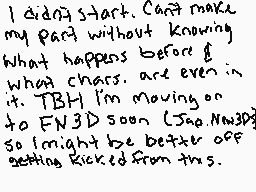 I didn't start. Can't make
my part without knowing
what happens before &
what chars. are even in
it. TBH I'm moving on
to FN3D soon (Jap. New3DS)
so I might be better off
getting kicked from this.